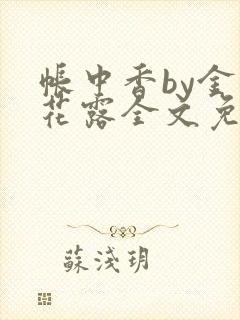 帳中香by金
花露全文免
蘇淺玥